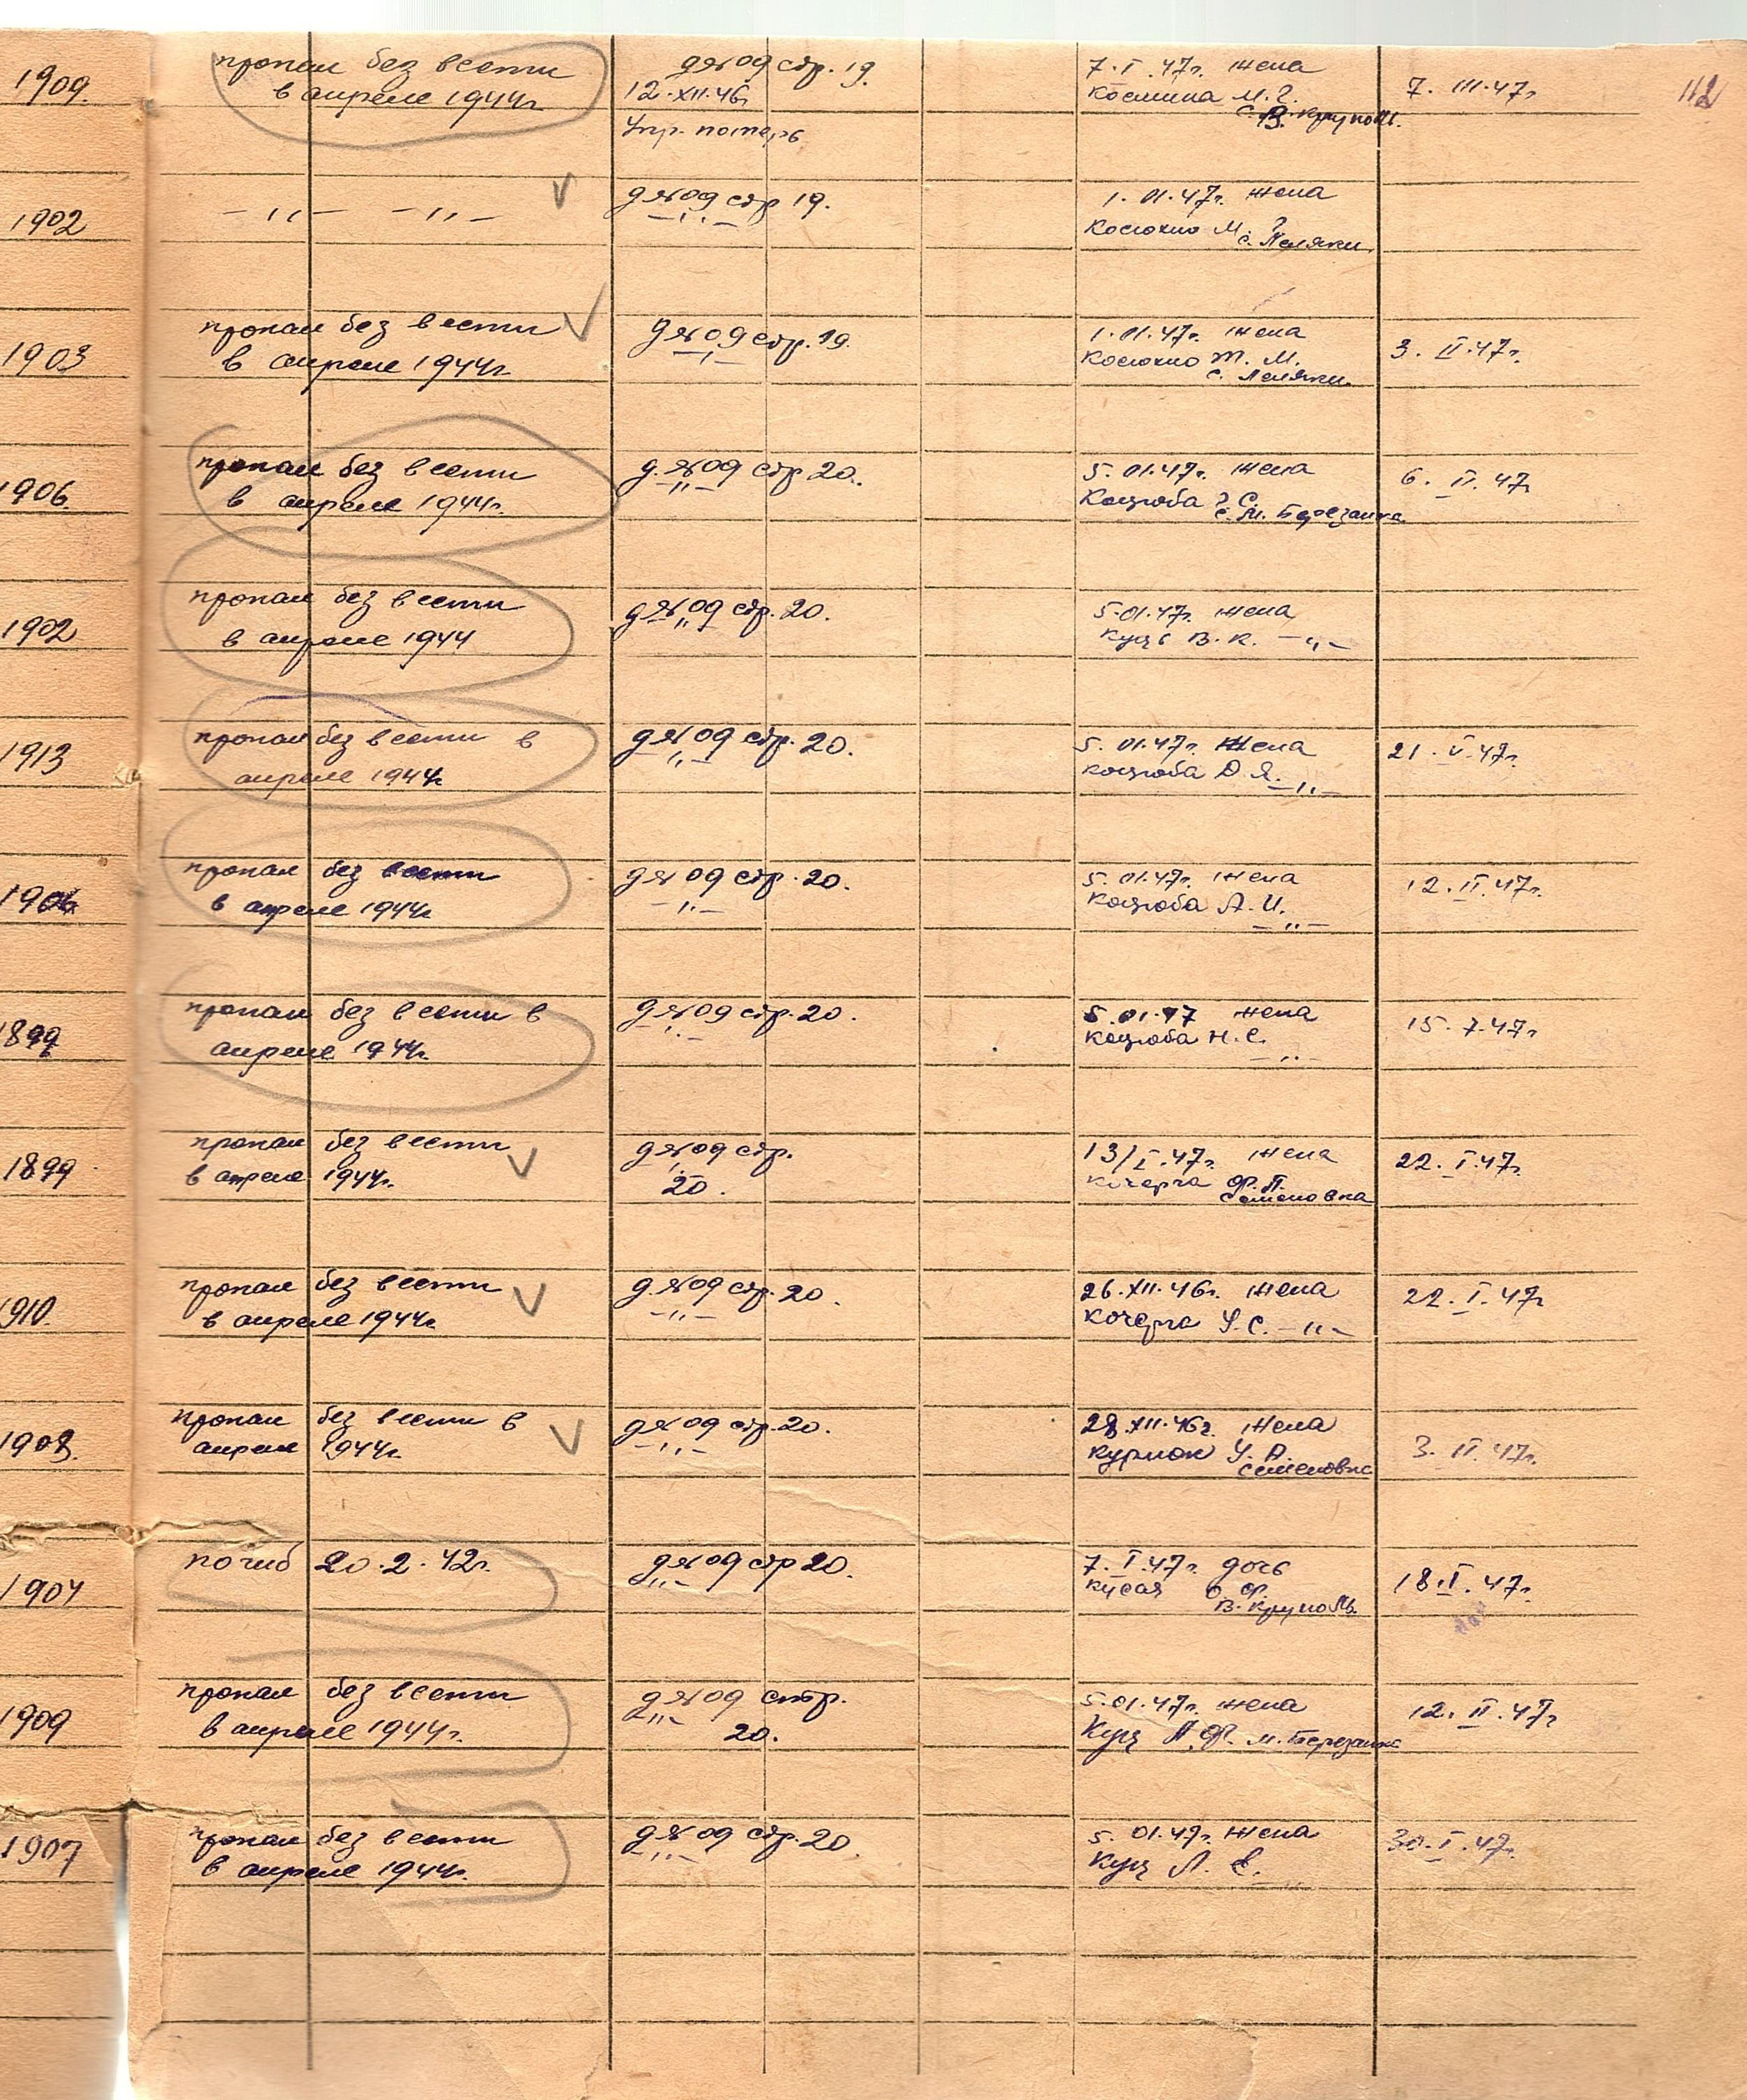 1909.
пропал без вести
в апреле 1944г
д№09 стр. 19.
12.XII.46г
Упр. потерь
7.I.47г. жена
Космина М.
В. Круполь.
7. III.47г
112
1902
— ,, — — ,, —
д№09 стр 19.
— ,, —
1.01.47г. жена
Косюхно М.
с. Леляки.
1903
пропал без вести
в апреле 1944г
д№09 стр. 19.
— ,, —
1.01.47г. жена
Косюхно Т. М.
с. Леляки.
3. II.47г.
1906.
пропал без вести
в апреле 1944г.
д.№09 стр. 20.
— ,, —
5.01.47г. жена
Коцюба С.
с. М. Березанка
6. II. 47г
1902
пропал без вести
в апреле 1944
д№09 стр. 20.
,,
5.01.47г. жена
Куць В. К. — ,, —
1913
пропал без вести в
апреле 1944г
д№09 стр. 20.
— ,, —
5.01.47г. жена
Коцюба О. Я.
— ,, —
21. V.47г.
пропал без вести
в апреле 1944г
д№09 стр. 20.
— ,, —
5.01.47г. жена
Коцюба А. И.
— ,, —
12.II.47г.
1899
пропал без вести в
апреле 1944г.
д№09 стр. 20.
— ,, —
5.01.47 жена
Коцюба Н. С.
— ,, —
15. 7.47г
1899
пропал без вести
в апреле 1944г.
д№09 стр.
20.
13/I.47г. жена
Кочерга Ф. П.
Семеновка
22. I.47г.
1910.
пропал без вести
в апреле 1944г
д.№09 стр. 20.
— ,, —
26.XII.46г. жена
Кочерга У. С. — ,, —
22. I. 47г
1908.
пропал без вести в
апреле 1944г.
д№09 стр. 20.
— ,, —
28.XII.46г. жена
Курмок У. А.
Семеновка
3. II.47г.
1904
погиб 20.2.42г.
д№09 стр 20.
,, —
7. I.47г. дочь
Кусая О. Ф.
В. Круполь
18.I.47г.
1909
пропал без вести
в апреле 1944г.
д№09 стр.
20.
5.01.47г. жена
Куц П. Ф. м. Березанка
12. II.47г
1907
пропал без вести
в апреле 1944г.
д№09 стр. 20.
— ,, —
5.01.47г. жена
Куц Л. Е.
— ,, —
30.I.47г.